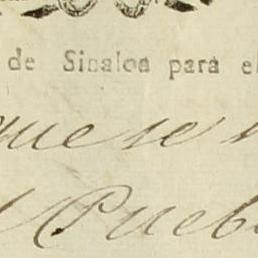 de Sinaloa para el
que se
Pueb